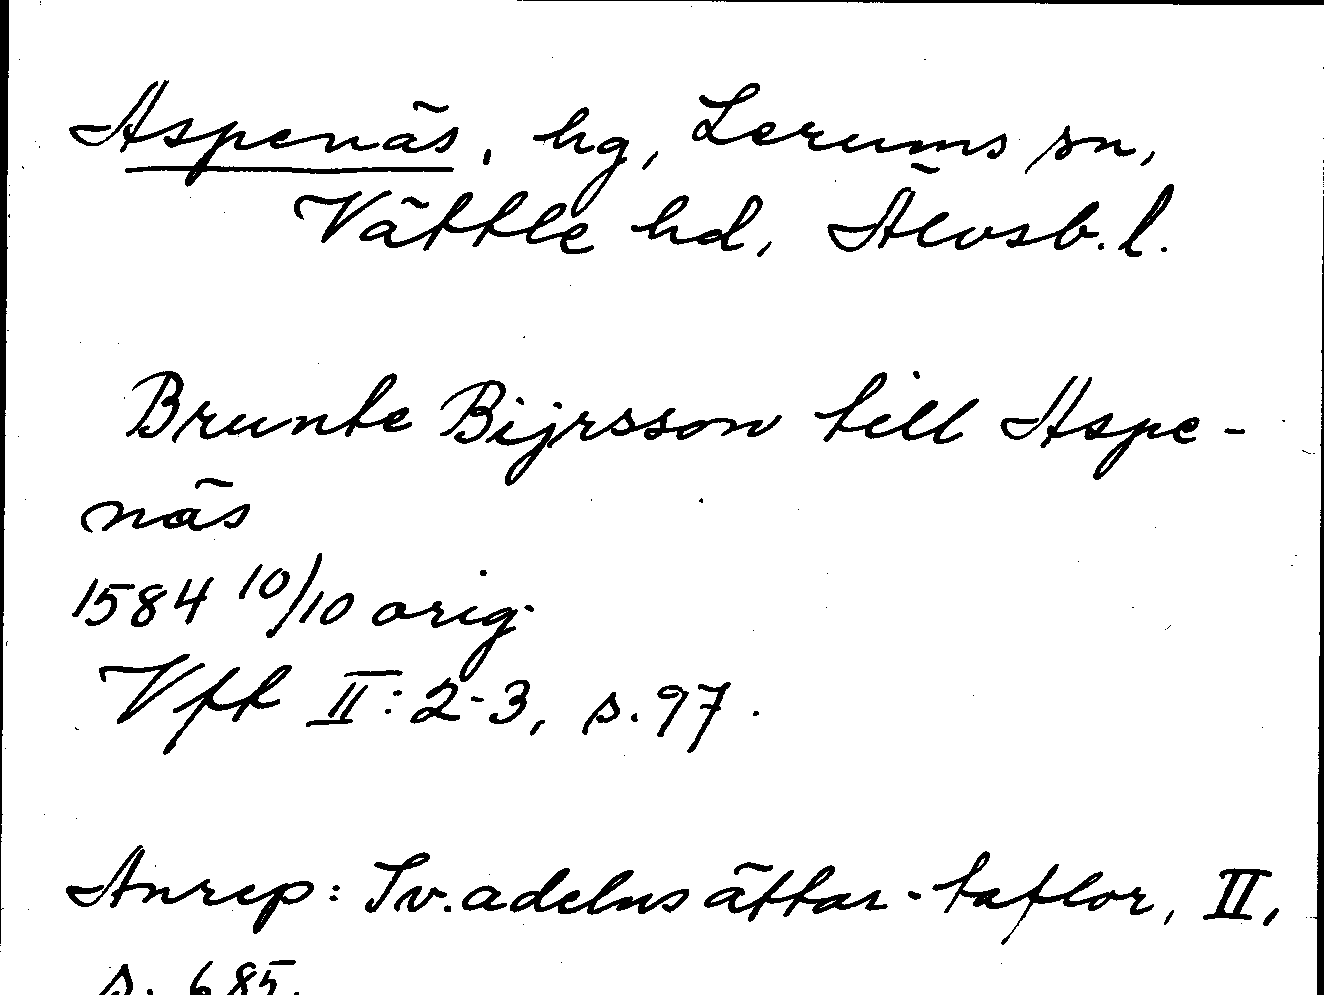 Aspenäs, hg, Lerums sn,
Vättle hd, Älvsb. l.
Brunte Bijrsson till Aspe-
näs
1584 10/10 orig.
Vft II: 2-3, s. 97.
Anrep: Sv. adelns ättar-taflor, II,
s. 685.